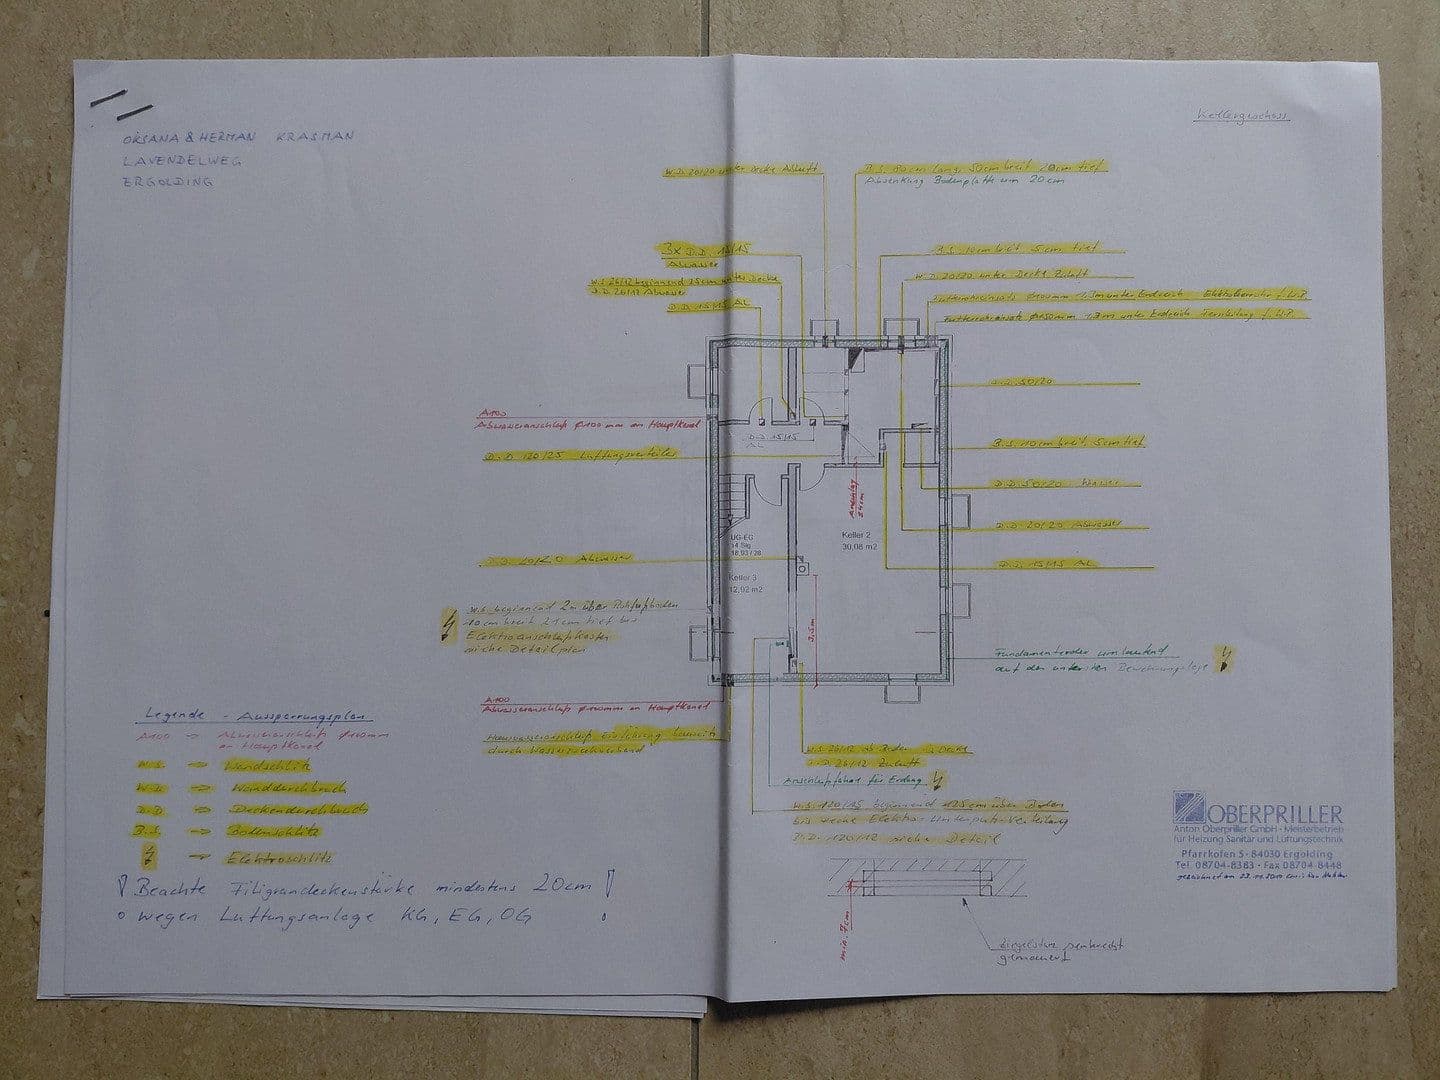 ORSANA & HERMAN KRASMAN
LAVENDELWEG
ERGOLDING
Kellergeschoss
W.D. 20/20 unter Decke Abluft
B.S. 80cm lang, 50cm breit 20cm tief
Absenkung Bodenplatte um 20cm
3x D.D. 15/15
Abwasser
W.S. 26/12 beginnend 25cm unter Decke
D.D. 26/12 Abwasser
D.D. 15/15 AL
B.S. 10cm breit 5cm tief
W.D. 20/20 unter Decke Zuluft
Futterrohreinsatz Ø100mm 1,3m unter Erdreich Elektroleerrohr f. W.P.
Futterrohreinsatz Ø150mm 1,3m unter Erdreich Fernleitung f. W.P.
D.D. 50/20
A100
Abwasseranschluß Ø100mm an Hauptkanal
D.D. 15/15
AL
D.D. 120/25 Lüftungsverteiler
B.S. 10cm breit, 5cm tief
D.D. 50/20 Wasser
24cm
D.D. 20/20 Abwasser
UG-EG
14 Stg
18,93 / 28
Keller 2
30,08 m2
D.D. 20/20 Abwasser
D.D. 15/15 AL
Keller 3
12,92 m2
W.S. beginnend 2m über Rohfußboden
10cm breit 21cm tief bis
Elektroanschlußkasten
siehe Detailplan
3,5m
Fundamenterder umlaufend
auf der untersten Bewehrungslage
A100
Abwasseranschluß Ø100mm an Hauptkanal
Hauswasseranschluß Einführung bauseits
durch Wasserzweckverband
W.S. 26/12 ab Boden bis Decke
D.D. 26/12 Zuluft
Anschlußfahne für Erdung
W.S. 120/15 beginnend 125cm über Boden
bis Decke Elektro-Unterputz-Verteilung
D.D. 120/12 siehe Detail
Legende - Aussparungsplan
A100 => Abwasseranschluß Ø100mm
an Hauptkanal
W.S. => Wandschlitz
W.D. => Wanddurchbruch
D.D. => Deckendurchbruch
B.S. => Bodenschlitz
=> Elektroschlitz
! Beachte Filigrandeckenstärke mindestens 20cm !
wegen Lüftungsanlage KG, EG, OG
min. 7cm
Ziegelsturz senkrecht
gemauert
OBERPRILLER
Anton Oberpriller GmbH - Meisterbetrieb
für Heizung Sanitär und Lüftungstechnik
Pfarrkofen 5 · 84030 Ergolding
Tel. 08704-8383 · Fax 08704-8448
gezeichnet am